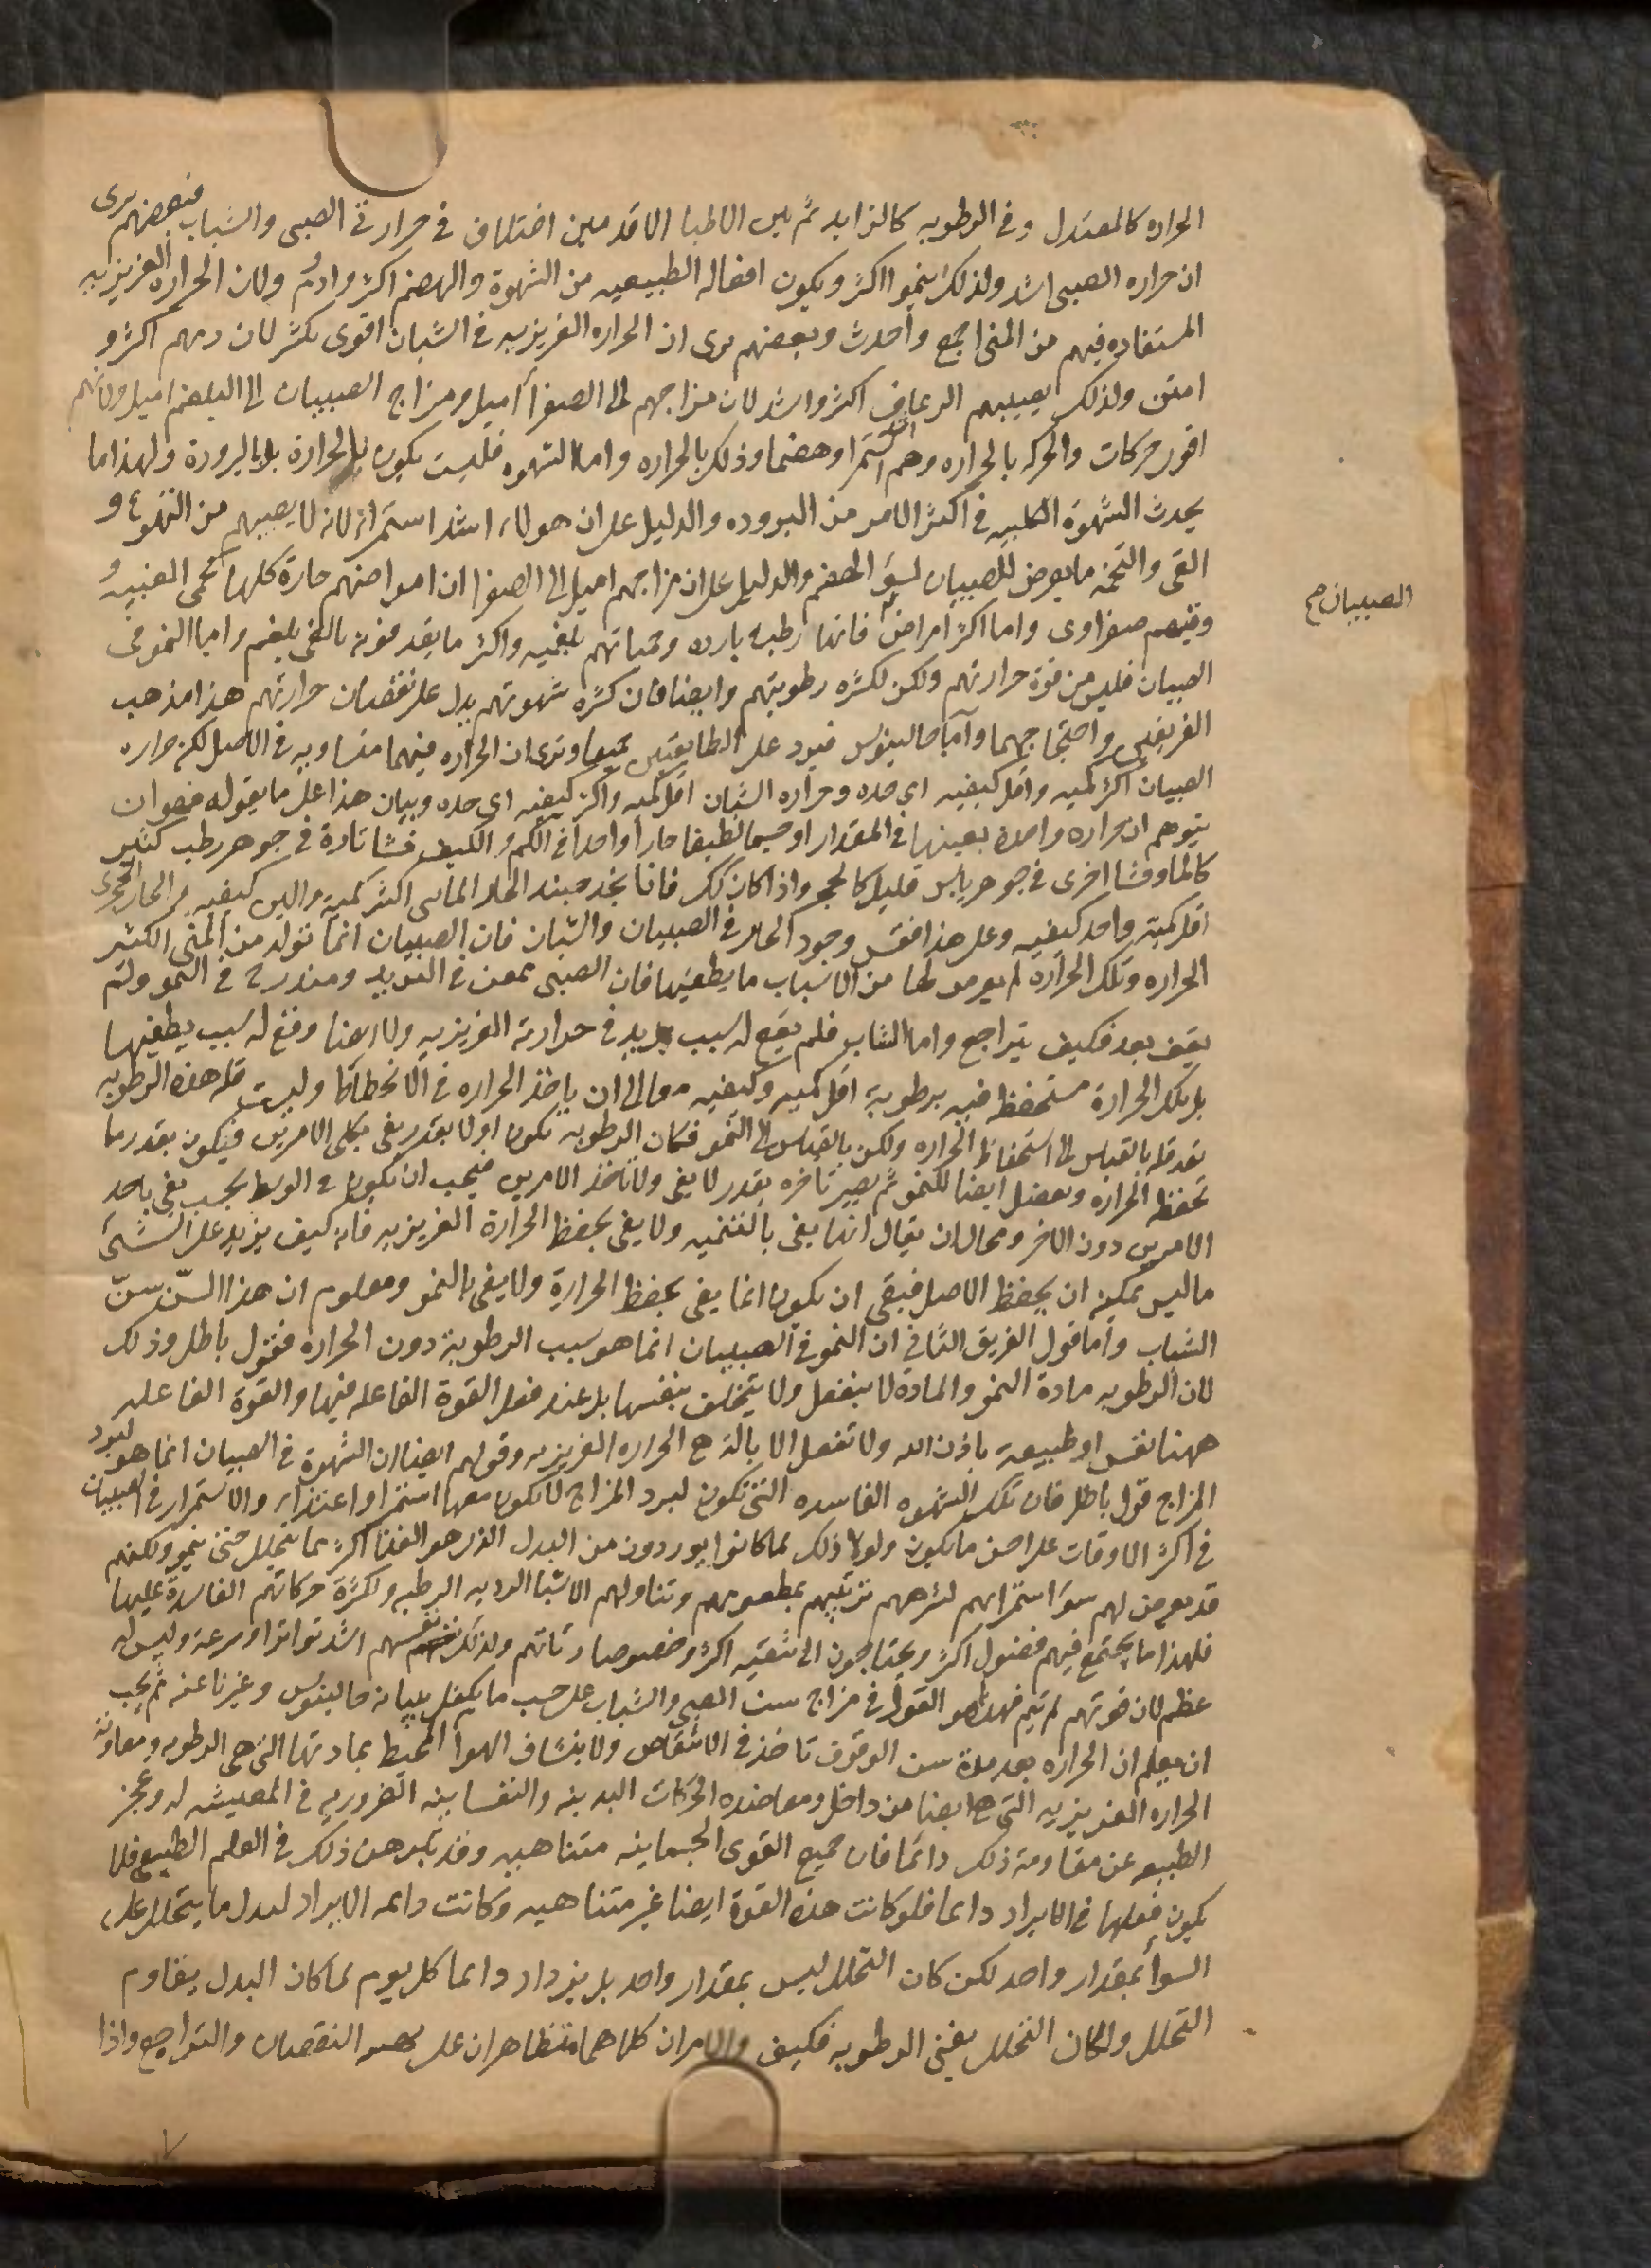 الحراره كالمعتدل وفى الرطوبه كالزايد ثم بين الاطبا الاقدمين اختلاف فى حرارتى الصبى والشباب فبعضهم يرى
ان حراره الصبى اشد ولذلك ينمو اكثر ويكون افعاله الطبيعيه من الشهوة والهضم اكثر وادوم ولان الحراره الغريزيه
المستفاده فيهم من المنى اجمع واحدث وبعضهم يرى ان الحراره الغريزيه فى الشبان اقوى بكثير لان دمهم اكثر و
امتن ولذلك يصيبهم الرعاف اكثر واشد لان مزاجهم الى الصفرا اميل ومزاج الصبيان الى البلغم اميل ولانهم
اقوى حركات والحركه بالحراره وهم اشد استمرا وهضما وذلك بالحراره واما الشهوه فليست يكون بالحرارة بل بالبرودة ولهذا ما
يحدث الشهوة الكلبيه فى اكثر الامر من البروده والدليل على ان هولاء اشد استمراء لانه لا يصيبهم من التهوع و
القى والتخمه ما يعرض للصبيان لسوء الهضم والدليل على ان مزاجهم اميل الى الصفرا ان امراضهم حارة كلها كحمى الغبيه و
الصبيان صح
وقيئهم صفراوى واما اكثر امراض فانها رطبه بارده وحمياتهم بلغميه واكثر ما يقذفونه بالقى بلغم واما النمو فى
الصبيان فليس من قوة حرارتهم ولكن لكثره رطوبتهم وايضا فان كثره شهوتهم يدل على نقصان حرارتهم هذا مذهب
الفريقين واحتجاجهما واما جالينوس فيرد على الطايفتين جميعا ويرى ان الحراره فيهما متساويه فى الاصل لكن حراره
الصبيان اكثر كميه واقل كيفيه اى حده وحراره الشبان اقل كميه واكثر كيفيه اى حده وبيان هذا على ما يقوله فهو ان
يتوهم ان حراره واحدة بعينها فى المقدار او جسما لطيفا حارا واحدا فى الكم والكيف فشا تارة فى جوهر رطب كثير
كالما وفشا اخرى فى جوهر يابس قليل كالحجر واذا كان كك فانا نجد حينئذ الحار المائى اكثر كمية والين كيفيه والحار الحجرى
اقل كمية واحد كيفيه وعلى هذا فقس وجود الحار فى الصبيان والشبان فان الصبيان انما تولد من المنى الكثير
الحراره وتلك الحرارة لم يعرض لها من الاسباب ما يطفئها فان الصبى ممعن فى التزيد ومتدرج فى النمو ولم
يقف بعد فكيف يتراجع واما الشاب فلم يقع له سبب يزيد فى حرارته الغريزيه ولا ايضا وقع له سبب يطفيها
بل تلك الحرارة مستحفظه فيه برطوبة اقل كميه وكيفيه معا الى ان ياخذ الحراره فى الانحطاط وليست قله هذه الرطوبه
تعد قله بالقياس الى استحفاظ الحراره ولكن بالقياس الى النمو فكان الرطوبه تكون اولا بقدر يفى بكلى الامرين فيكون بقدر ما
تحفظ الحراره وتفضل ايضا للنمو ثم يصير باخره بقدر لا يفى ولا باحد الامرين فيجب ان يكون فى الوسط بحيث يفى باحد
الامرين دون الاخر ومحال ان يقال انها يفى بالتنميه ولا يفى بحفظ الحرارة الغريزيه فانه كيف يزيد على الشئ
ما ليس يمكنه ان يحفظ الاصل فبقى ان يكون انما يفى بحفظ الحرارة ولا يفى بالنمو ومعلوم ان هذا السن سن
الشباب واما قول الفريق الثانى ان النمو فى الصبيان انما هو بسبب الرطوبة دون الحراره فقول باطل وذلك
لان الرطوبه مادة النمو والمادة لا ينفعل ولا يتخلف بنفسها بل عند فعل القوة الفاعله فيها والقوة الفاعله
ههنا نفس او طبيعة باذن الله ولا تفعل الا بالة هى الحراره الغريزيه وقولهم ايضا ان الشهوة فى الصبيان انما هو لبرد
المزاج قول باطل فان تلك الشهوه الفاسده التى تكون لبرد المزاج لا يكون معها استمرا واغتذاء والاستمرار فى الصبيان
فى اكثر الاوقات على احسن ما يكون ولولا ذلك لما كانوا يوردون من البدل الذى هو الغذا اكثر مما يتحلل حتى ينمو ولكنهم
قد يعرض لهم سوء استمرايهم لشرههم ترتيبهم بمطعومهم وتناولهم الاشيا الرديه الرطبه ولكثرة حركاتهم الفاسدة عليها
فلهذا ما يجتمع فيهم فضول اكثر ويحتاجون الى تنقيه اكثر وخصوصا رئاتهم ولذلك نفسهم اشد تواترا وسرعة وليس له
عظم لان قوتهم لم تتم فهذا هو القول فى مزاج سن الصبى والشباب على حسب ما يكفل ببيانه جالينوس وعبرنا عنه ثم يجب
ان يعلم ان الحراره بعد مدة سن الوقوف تاخذ فى الانتقاص ولا بنشاف الهوا المحيط بمادتها التى هى الرطوبه ومعاونة
الحراره الغريزيه التى هى ايضا من داخل ومعاضده الحركات البدنيه والنفسانيه الضروريه فى المعيشه له وعجز
الطبيعه عن مقاومة ذلك دائما فان جميع القوى الجسمانيه متناهيه وقد تبرهن ذلك فى العلم الطبيعى فلا
يكون فعلها فى الايراد دائما فلو كانت هذه القوة ايضا غير متناهيه وكانت دائمه الايراد لبدل ما يتحلل على
السوا بمقدار واحد لكن كان التحلل ليس بمقدار واحد بل يزداد دائما كل يوم لما كان البدل يقاوم
التحلل ولكان التحلل يفنى الرطوبه فكيف والامران كلاهما متظاهران على تهيه النقصان والتراجع واذا